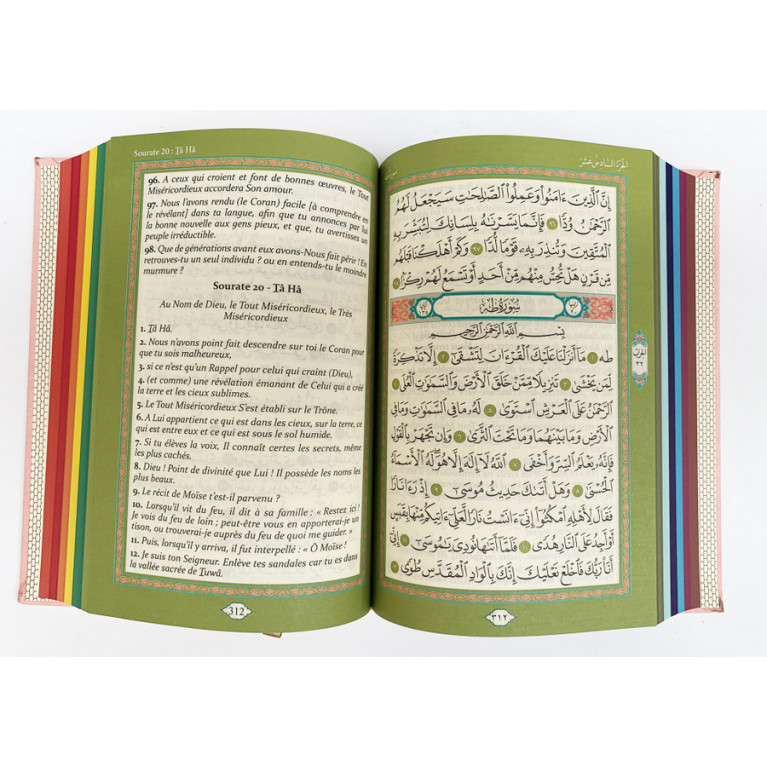 Sourate 20 : Ṯâ Hâ
96. A ceux qui croient et font de bonnes œuvres, le Tout
Miséricordieux accordera Son amour.
97. Nous l'avons rendu (le Coran) facile [à comprendre en
le révélant] dans ta langue, afin que tu annonces par lui
la bonne nouvelle aux gens pieux, et que, tu avertisses un
peuple irréductible.
98. Que de générations avant eux avons-Nous fait périr ! En
retrouves-tu un seul individu ? ou en entends-tu le moindre
murmure ?
Sourate 20 - Ṯâ Hâ
Au Nom de Dieu, le Tout Miséricordieux, le Très
Miséricordieux
1. Ṯâ Hâ.
2. Nous n'avons point fait descendre sur toi le Coran pour
que tu sois malheureux,
3. si ce n'est qu'un Rappel pour celui qui craint (Dieu),
4. (et comme) une révélation émanant de Celui qui a créé
la terre et les cieux sublimes.
5. Le Tout Miséricordieux S'est établi sur le Trône.
6. A Lui appartient ce qui est dans les cieux, sur la terre, ce
qui est entre eux et ce qui est sous le sol humide.
7. Si tu élèves la voix, Il connaît certes les secrets, même
les plus cachés.
8. Dieu ! Point de divinité que Lui ! Il possède les noms les
plus beaux.
9. Le récit de Moïse t'est-il parvenu ?
10. Lorsqu'il vit du feu, il dit à sa famille : « Restez ici !
Je vois du feu de loin ; peut-être vous en apporterai-je un
tison, ou trouverai-je auprès du feu de quoi me guider. »
11. Puis, lorsqu'il y arriva, il fut interpellé : « Ô Moïse !
12. Je suis ton Seigneur. Enlève tes sandales car tu es dans
la vallée sacrée de Ṯuwâ.
312
الجزء السادس عشر
إِنَّ ٱلَّذِينَ ءَامَنُوا۟ وَعَمِلُوا۟ ٱلصَّٰلِحَٰتِ سَيَجْعَلُ لَهُمُ
ٱلرَّحْمَٰنُ وُدًّا ٩٦ فَإِنَّمَا يَسَّرْنَٰهُ بِلِسَانِكَ لِتُبَشِّرَ بِهِ
ٱلْمُتَّقِينَ وَتُنذِرَ بِهِۦ قَوْمًا لُّدًّا ٩٧ وَكَمْ أَهْلَكْنَا قَبْلَهُم
مِّن قَرْنٍ هَلْ تُحِسُّ مِنْهُم مِّنْ أَحَدٍ أَوْ تَسْمَعُ لَهُمْ رِكْزًۢا ٩٨
سُورَةُ طه
بِسْمِ ٱللَّهِ ٱلرَّحْمَٰنِ ٱلرَّحِيمِ
طه ١ مَآ أَنزَلْنَا عَلَيْكَ ٱلْقُرْءَانَ لِتَشْقَىٰٓ ٢ إِلَّا تَذْكِرَةً
لِّمَن يَخْشَىٰ ٣ تَنزِيلًا مِّمَّنْ خَلَقَ ٱلْأَرْضَ وَٱلسَّمَٰوَٰتِ ٱلْعُلَى ٤
ٱلرَّحْمَٰنُ عَلَى ٱلْعَرْشِ ٱسْتَوَىٰ ٥ لَهُۥ مَا فِى ٱلسَّمَٰوَٰتِ وَمَا فِى
ٱلْأَرْضِ وَمَا بَيْنَهُمَا وَمَا تَحْتَ ٱلثَّرَىٰ ٦ وَإِن تَجْهَرْ بِٱلْقَوْلِ
فَإِنَّهُۥ يَعْلَمُ ٱلسِّرَّ وَأَخْفَى ٧ ٱللَّهُ لَآ إِلَٰهَ إِلَّا هُوَ لَهُ ٱلْأَسْمَآءُ
ٱلْحُسْنَىٰ ٨ وَهَلْ أَتَىٰكَ حَدِيثُ مُوسَىٰٓ ٩ إِذْ رَءَا نَارًا
فَقَالَ لِأَهْلِهِ ٱمْكُثُوٓا۟ إِنِّىٓ ءَانَسْتُ نَارًا لَّعَلِّىٓ ءَاتِيكُم مِّنْهَا بِقَبَسٍ
أَوْ أَجِدُ عَلَى ٱلنَّارِ هُدًى ١٠ فَلَمَّآ أَتَىٰهَا نُودِىَ يَٰمُوسَىٰٓ ١١ إِنِّىٓ
أَنَا۠ رَبُّكَ فَٱخْلَعْ نَعْلَيْكَ إِنَّكَ بِٱلْوَادِ ٱلْمُقَدَّسِ طُوًى ١٢
الحزب
٣٢
٣١٢